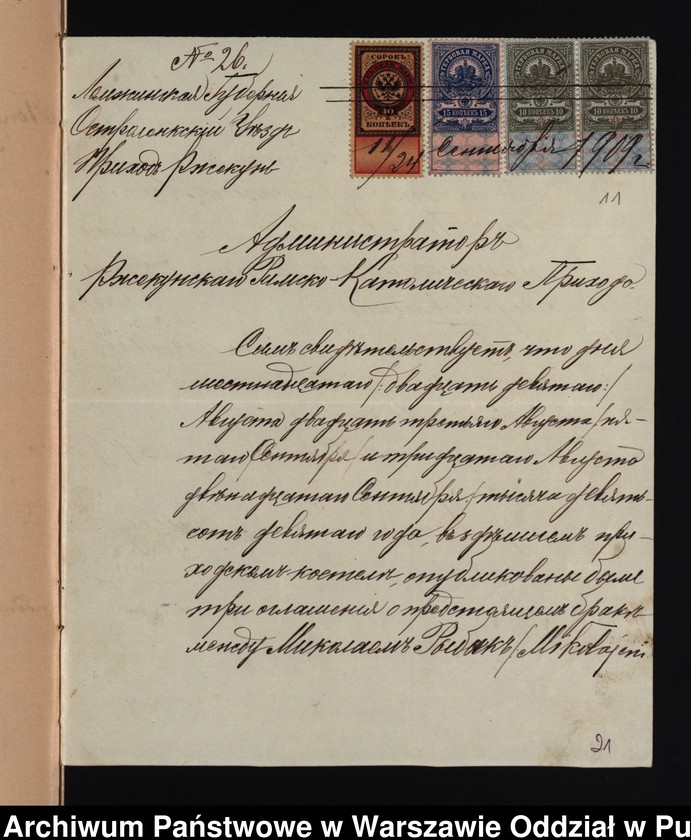 № 26.
Ломжинская Губернія
Остроленкскій Уѣздъ
Приходъ Ржекунь
СОРОКЪ
40
КОПѢЕКЪ
ГЕРБОВАЯ МАРКА
15 КОПѢЕКЪ 15
ГЕРБОВАЯ МАРКА
10 КОПѢЕКЪ 10
ГЕРБОВАЯ МАРКА
10 КОПѢЕКЪ 10
11/24 Сентября 1909 г.
11
Администраторъ
Ржекунскаго Римско-Католическаго Прихода.
Симъ свидѣтельствуетъ, что дня
шестнадцатаго /: двадцать девятаго :/
Августа двадцать третьяго Августа /пя-
таго Сентября/ и тридцатаго Августа
двѣнадцатаго Сентября :/ тысяча девять-
сотъ девятаго года, въ здѣшнемъ при-
ходскомъ костелѣ, опубликованы были
три оглашенія о предстоящемъ бракѣ
между Миколаемъ Рыбакъ /Mikołajem
21
Archiwum Państwowe w Warszawie Oddział w Pu